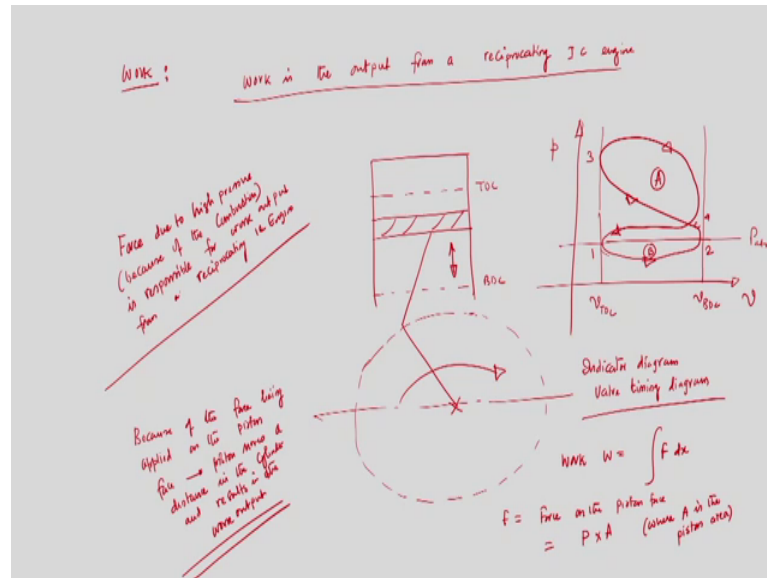 Work :
Work is the output from a reciprocating IC engine
Force due to high pressure
(because of the combustion)
is responsible for work output
from a reciprocating IC Engine
TDC
BDC
P
3
A
4
1
B
2
v TDC
v BDC
v
Because of the force being
applied on the piston
face → piston moves a
distance in the cylinder
and results in the
work output
Indicator diagram
Valve timing diagram
Work W = ∫ F dx
F = Force on the piston face
= P x A (where A is the
piston area)